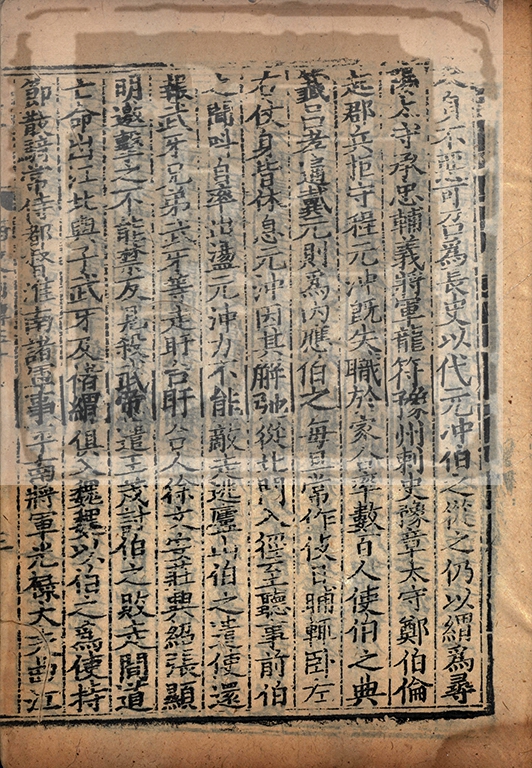 身不惡可召爲長史以代元冲伯之從之仍以緭爲尋
陽太守承忠輔義將軍龍符豫州刺史豫章太守鄭伯倫
起郡兵拒守程元冲旣失職於家合率數百人使伯之典
籖吕孝通戴元則爲内應伯之每旦常作伎日晡輒卧左
右仗身皆休息元冲因其解弛從北門入徑至聽事前伯
之聞叫自率出盪元冲力不能敵走逃廬山伯之遣使還
報武牙兄弟武牙等走盱台盱台人徐文安莊興紹張顯
明邀擊之不能禁反見殺武帝遣王茂討伯之敗走間道
亡命出江北與子武牙及褚緭俱入魏魏以伯之爲使持
節散騎常侍都督淮南諸軍事平南將軍光祿大夫曲江